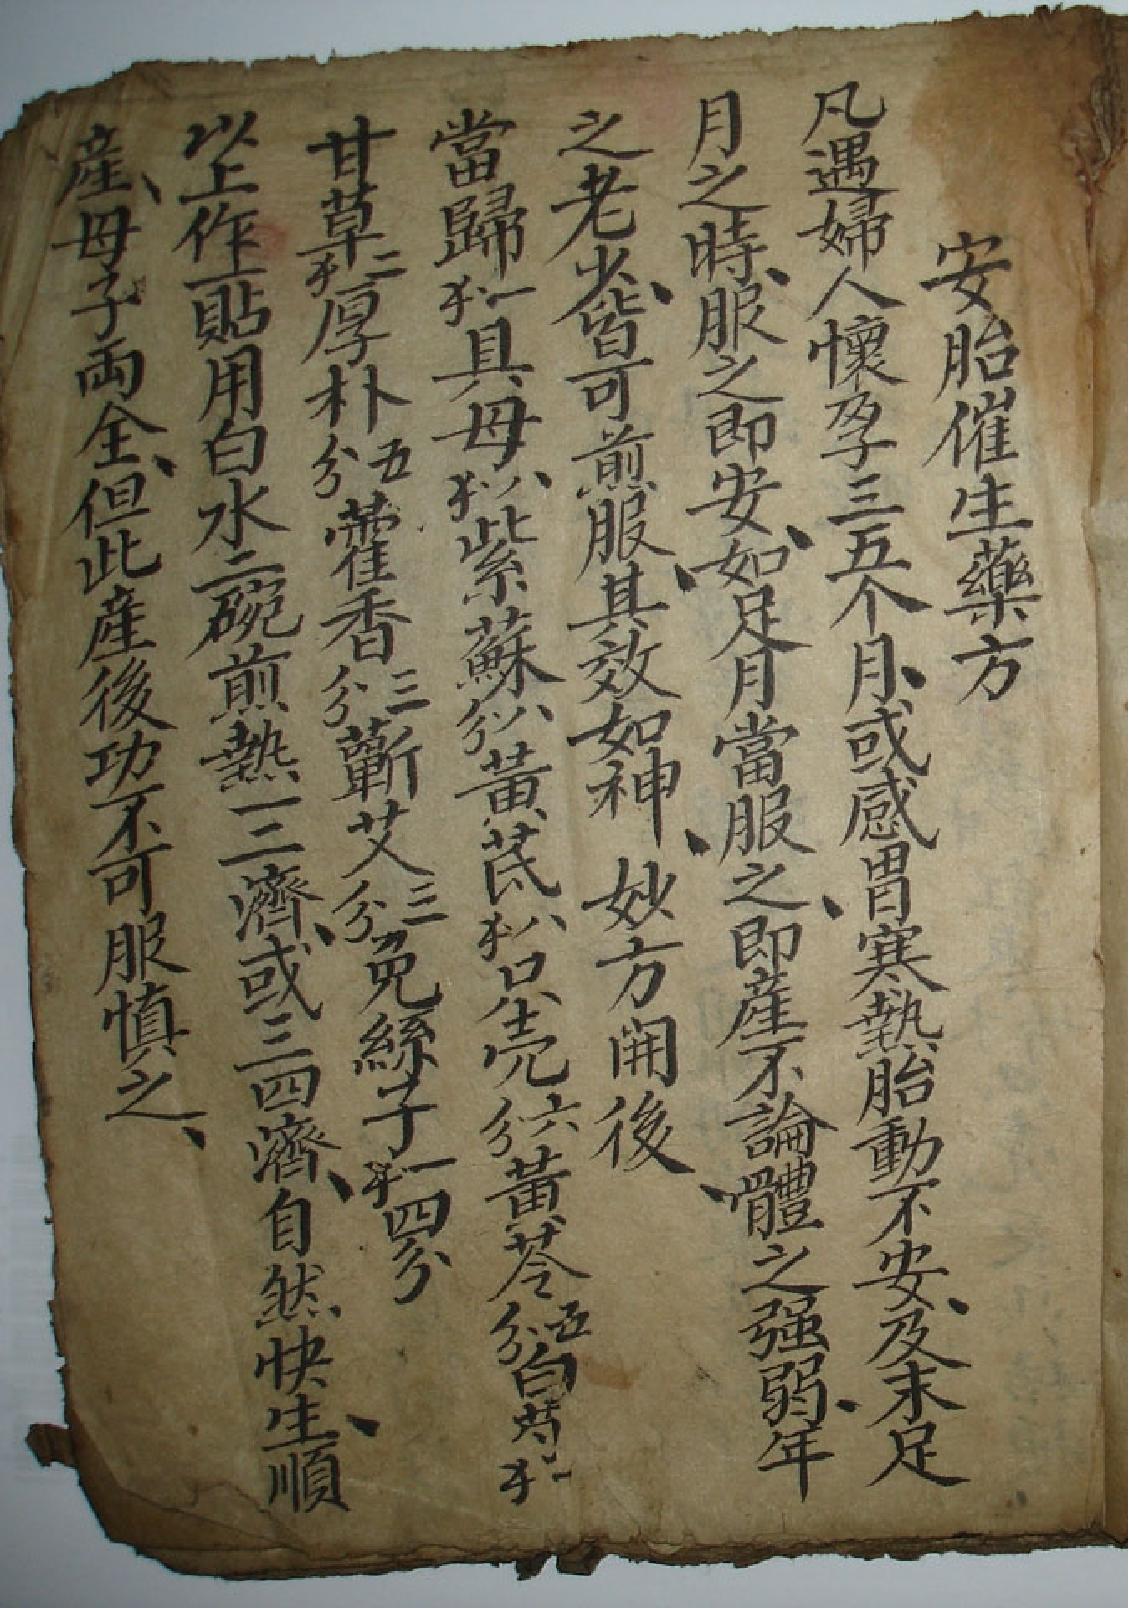 安胎催生藥方
凡遇婦人懷孕三五个月、或感冒寒熱胎動不安、及未足
月之時、服之即安、如足月當服之、即產不論體之强弱、年
之老少、皆可煎服、其效如神、妙方開後、
當歸一 具母 紫蘇 黃芪 只壳六分黃芩五分白芍
甘草二 厚朴五分藿香三分蘄艾三分免絲子一 四分
以上作一貼用白水二碗煎熱一二濟、或三四濟、自然快生、順
產、母子両全、但此産後功不可服慎之、